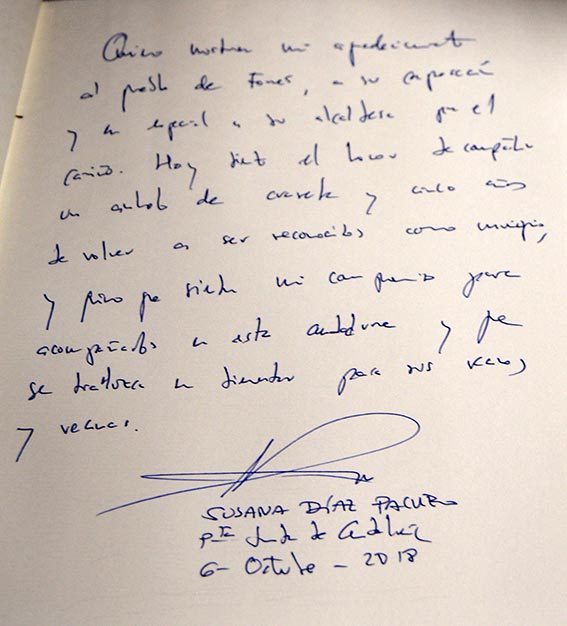 Quiero mostrar mi agradecimiento
al pueblo de Fornes, a su corporación
y en especial a su alcaldesa por el
cariño. Hoy siento el honor de compartir
un anhelo de cuarenta y cinco años
de volver a ser reconocidos como municipio,
y
mi compromiso para
acompañarlos en esta andadura y que
se traduzca en bienestar para sus vecinos
y vecinas.
SUSANA DÍAZ PACHECO
PTE Junta de Andalucía
6 - Octubre - 2018